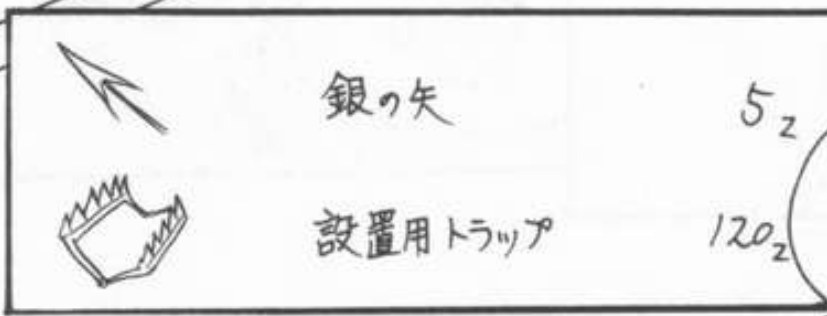 銀の矢 5z
設置用トラップ 120z